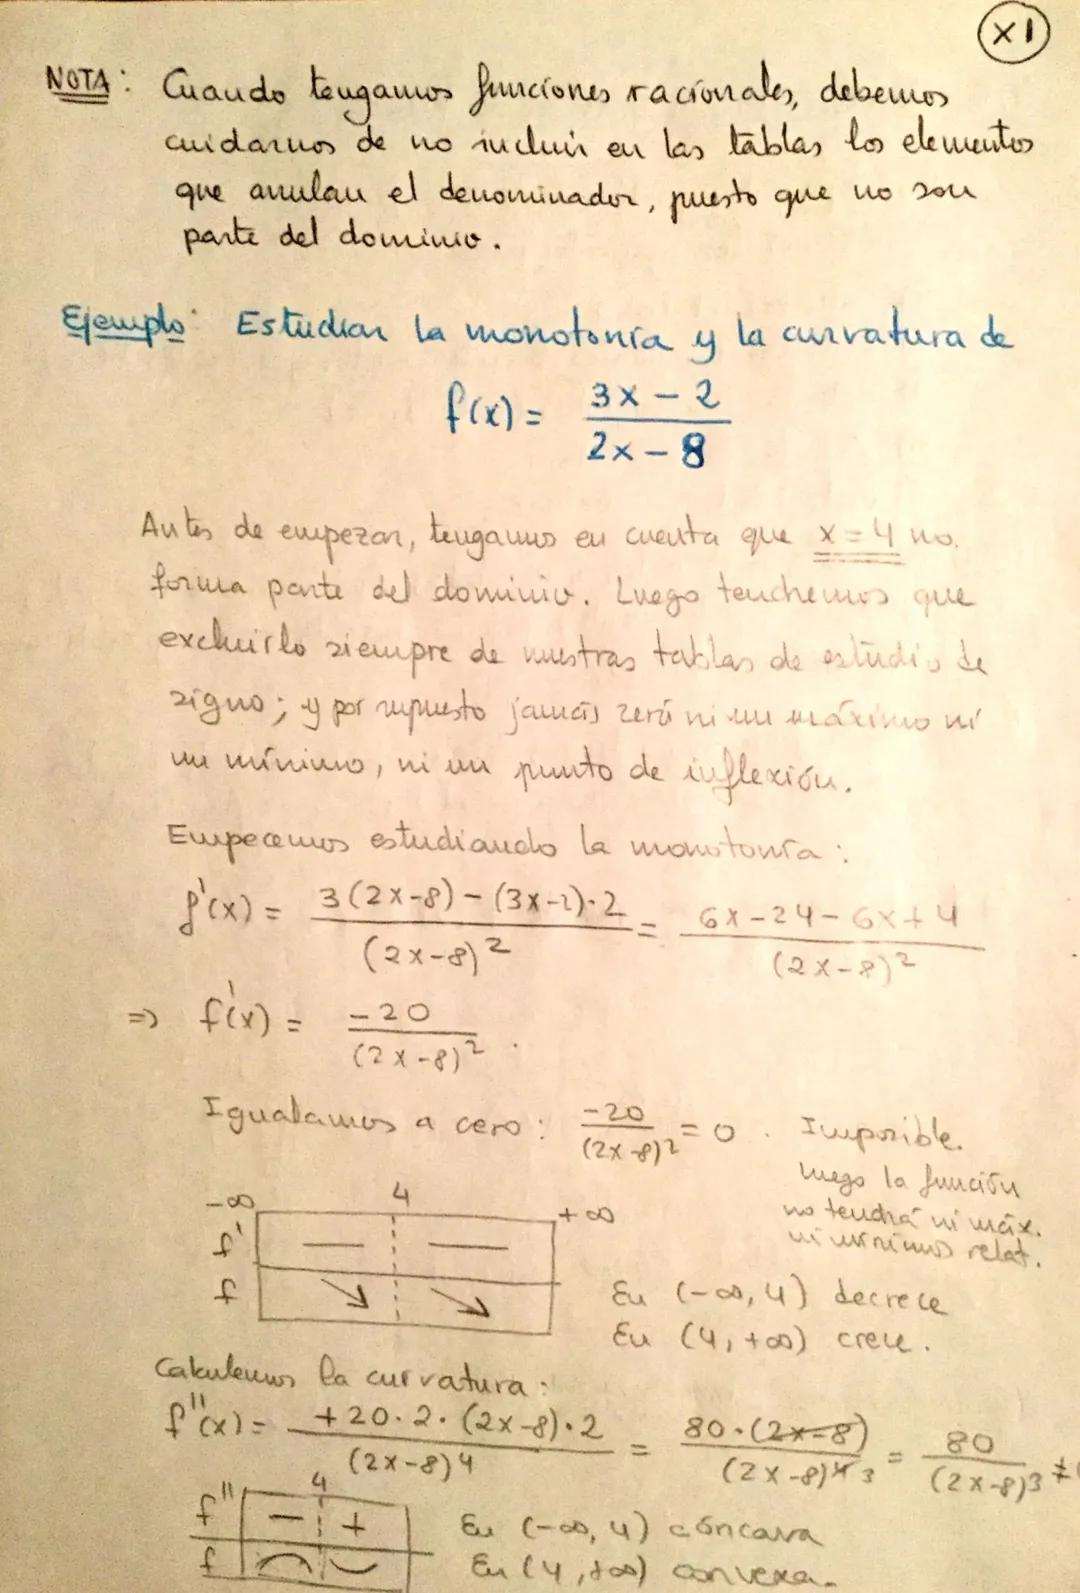 X1
NOTA: Cuando tengamos funciones racionales, debemos
cuidarnos de no incluir en las tablas los elementos
que anulan el denominador, puesto que no son
parte del dominio.
Ejemplo: Estudiar la monotonía y la curvatura de
f(x) = (3x - 2)/(2x - 8)
Antes de empezar, tengamos en cuenta que x = 4 no
forma parte del dominio. Luego tendremos que
excluirlo siempre de nuestras tablas de estudio de
signo; y por supuesto jamás será ni un máximo ni
un mínimo, ni un punto de inflexión.
Empecemos estudiando la monotonía:
f'(x) = (3(2x-8) - (3x-2)·2)/(2x-8)² = (6x-24-6x+4)/(2x-8)²
=> f'(x) = -20/(2x-8)².
Igualamos a cero: -20/(2x-8)² = 0. Imposible.
Luego la función
no tendrá ni máx.
ni mínimos relat.
-∞ 4 +∞
f' — —
f ↘ ↘
En (-∞, 4) decrece
En (4, +∞) crece.
Calculemos la curvatura:
f''(x) = (+20·2·(2x-8)·2)/(2x-8)4 = (80·(2x-8))/(2x-8)4 3 = 80/(2x-8)3 ≠
4
f'' - +
f
En (-∞, 4) cóncava
En (4, +∞) convexa.